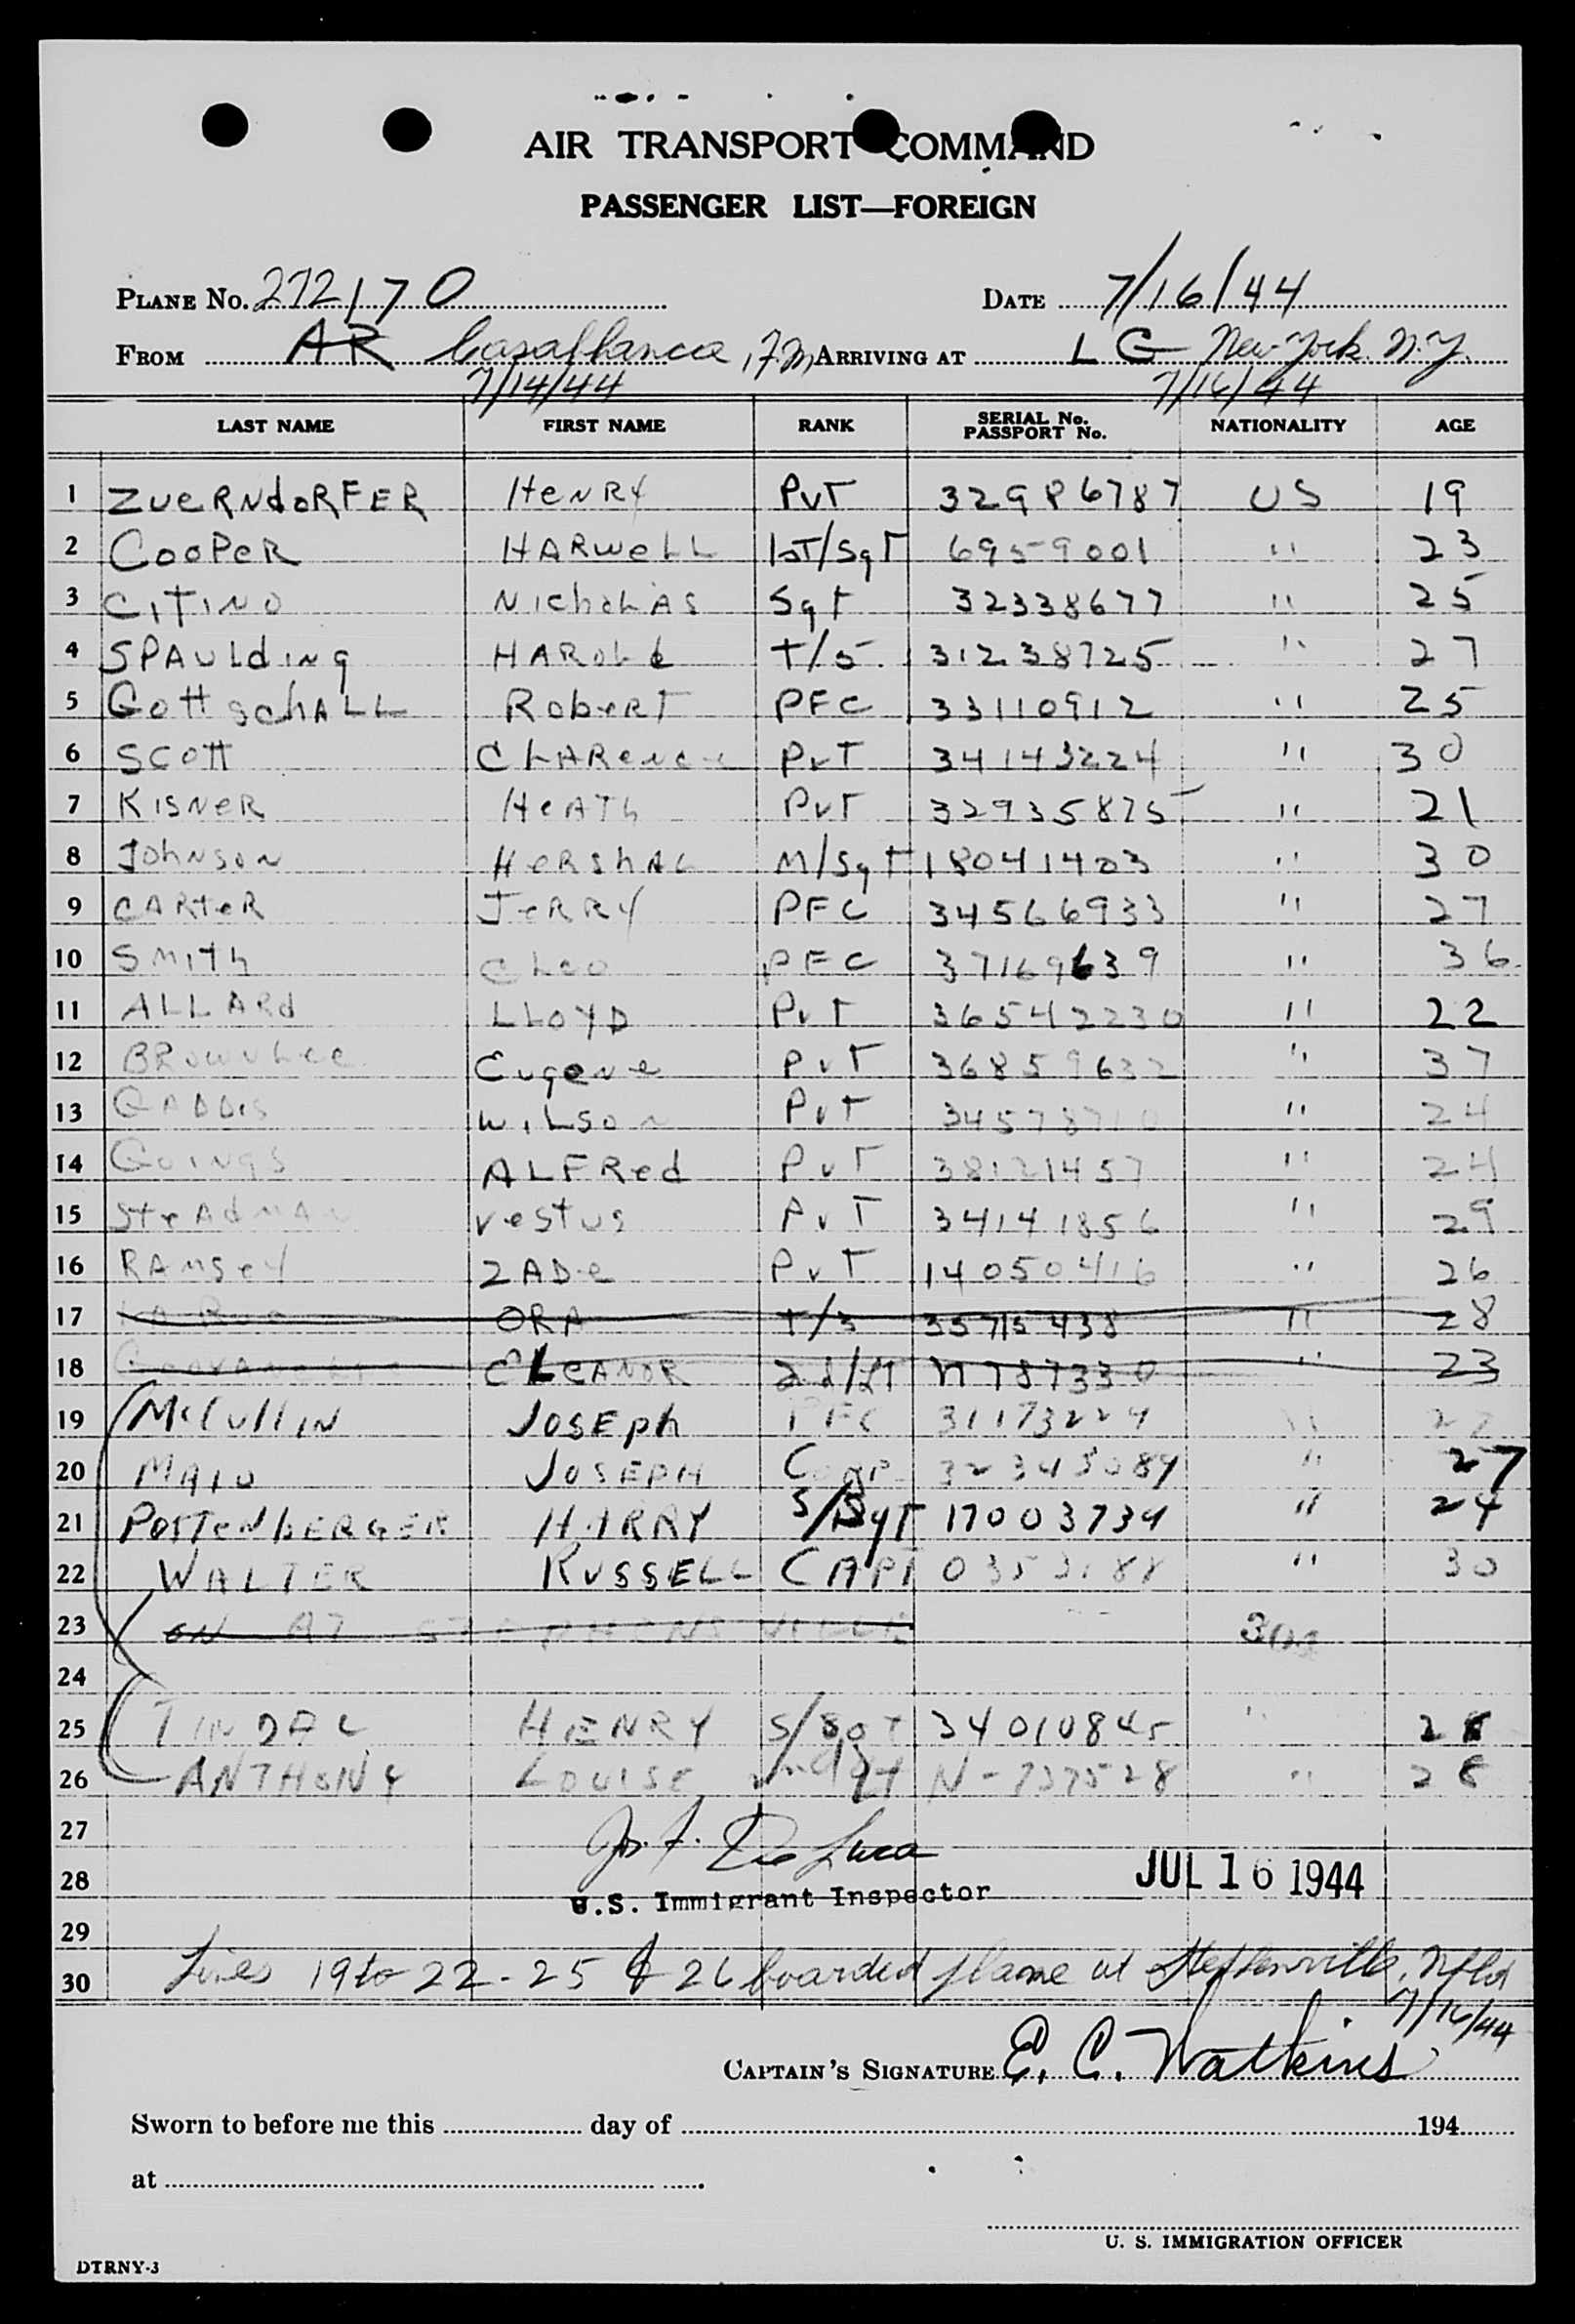 AIR TRANSPORT COMMAND
PASSENGER LIST—FOREIGN
PLANE No. 272170 DATE 7/16/44
FROM AR Casablanca, F.M. ARRIVING AT LG New York N.Y.
7/14/44 7/16/44
LAST NAME FIRST NAME RANK SERIAL No. PASSPORT No. NATIONALITY AGE
1 ZUeRNdoRFER HeNRy PvT 32986787 US 19
2 CooPeR HARweLL 1ST/SgT 6959001 " 23
3 CITINO NIchoLAS SgT 32338677 " 25
4 SPAULdINg HARoLd T/5. 31238725 " 27
5 GottschALL RobeRT PFC 33110912 " 25
6 SCOTT CLARence PvT 34143224 " 30
7 KISNeR HeATh PvT 32935875 " 21
8 JohNsoN HeRshAL M/SgT 18041403 " 30
9 CARteR JeRRy PFC 34566933 " 27
10 SMITh CLeo PFC 37169639 " 36
11 ALLARd LLOYD PvT 36542230 " 22
12 BRownLee Eugene PvT 36859632 " 37
13 GADDIS WILSON PvT 345787 " 24
14 GoINgS ALFRed PvT 38121457 " 24
15 SteAdMAN vestus PvT 34141856 " 29
16 RAMSey ZADe PvT 14050416 " 26
17 ORA T/5 35715438 " 28
18 ELeANOR 2d/LT N787330 " 23
19 McCullIN JOSEph PFC 31173224 " 27
20 MAIO JOSEPH CORP 32345089 " 27
21 PottenbERGER HARRY S/SgT 17003734 " 24
22 WALTER RUSSELL CAPT 0353188 " 30
23 ON AT STEPHENSVILLE
24
25 TINDAL HENRY S/SGT 34010845 " 28
26 ANTHONY LOUISE N-737528 " 28
27 De Luca
28 U.S. Immigrant Inspector JUL 16 1944
29
30 Lines 19 to 22 - 25 & 26 boarded plane at Stephenville, Nfld
7/16/44
CAPTAIN'S SIGNATURE E. C. Watkins
Sworn to before me this day of 194
at
U. S. IMMIGRATION OFFICER
DTRNY-3